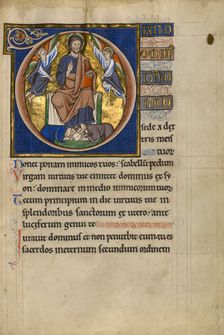 sede a dex
tris meis
Donec ponam inimicos tuos: scabellum pedum
Virgam virtutis tue emittet dominus ex sy
on: dominare in medio inimicorum tuor
Tecum principium in die virtutis tue in
splendoribus sanctorum ex utero: ante
luciferum genui te
Iuravit dominus et non penitebit eum: tu es
sacerdos in eternum secundum ordinem